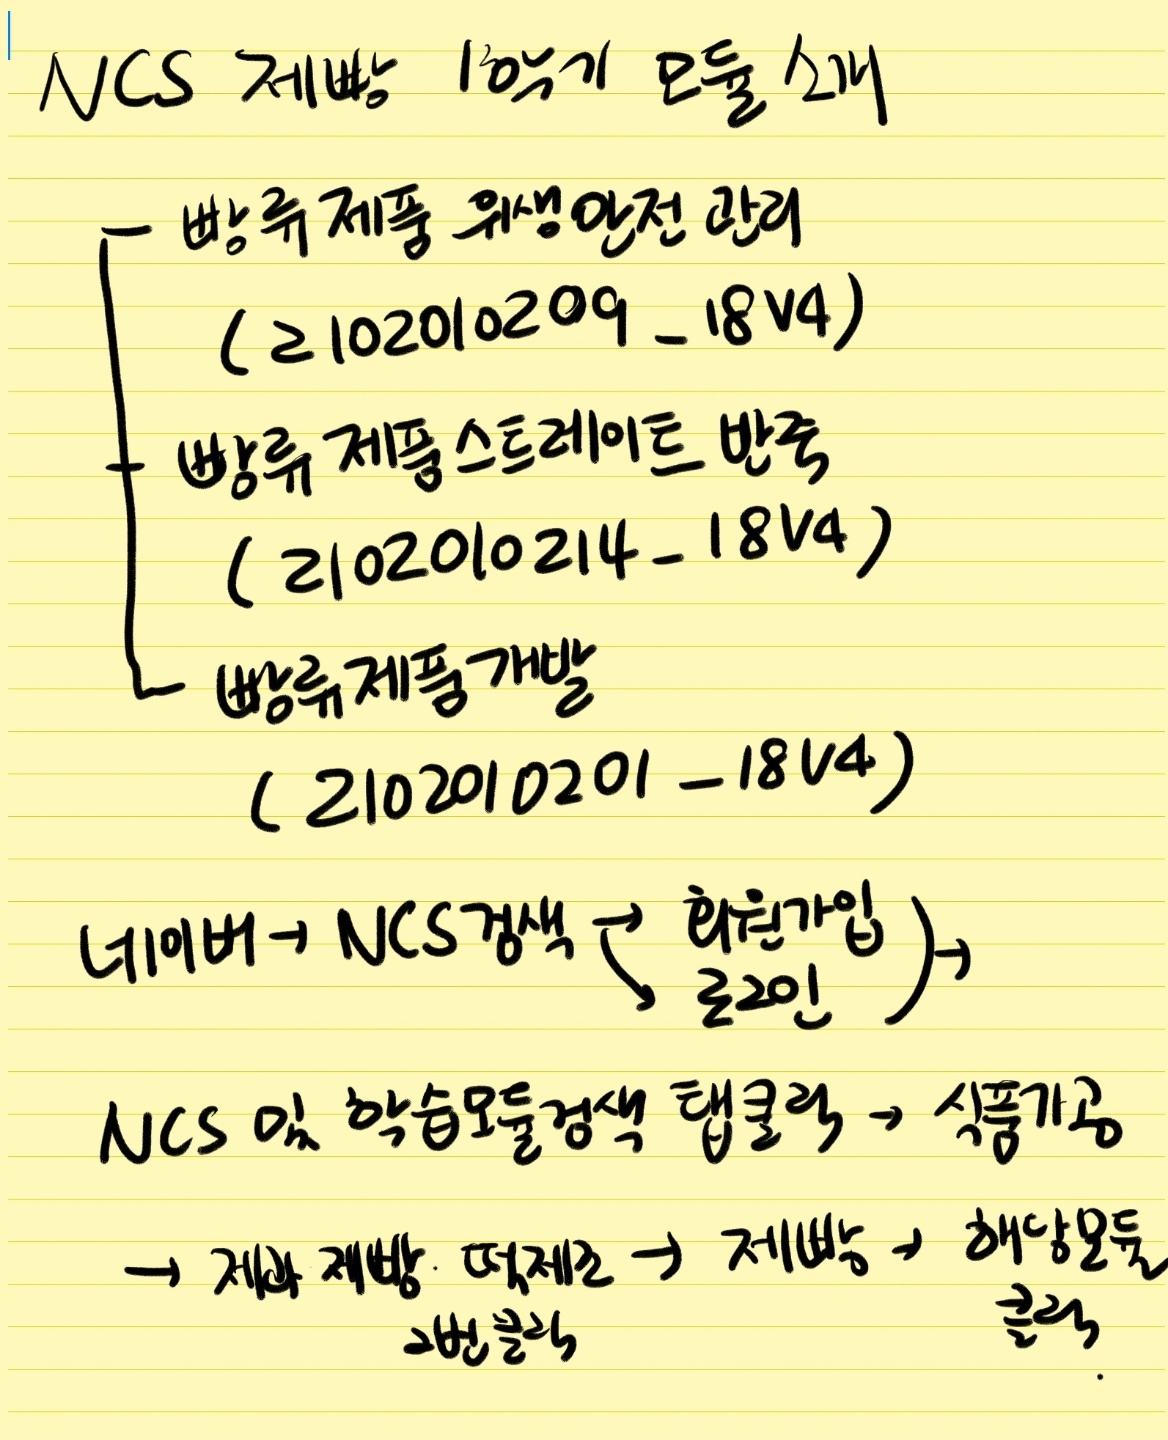 NCS 제빵 1학기 모듈 소개
빵류제품 위생안전 관리
(2102010209_18V4)
빵류제품스트레이트 반죽
(2102010214_18V4)
빵류제품개발
(2102010201_18V4)
네이버→ NCS검색 → 회원가입
로그인 →
NCS 및 학습모듈검색 탭클릭 → 식품가공
→ 제과 제빵. 떡제조 → 제빵 → 해당모듈
2번클릭 클릭.